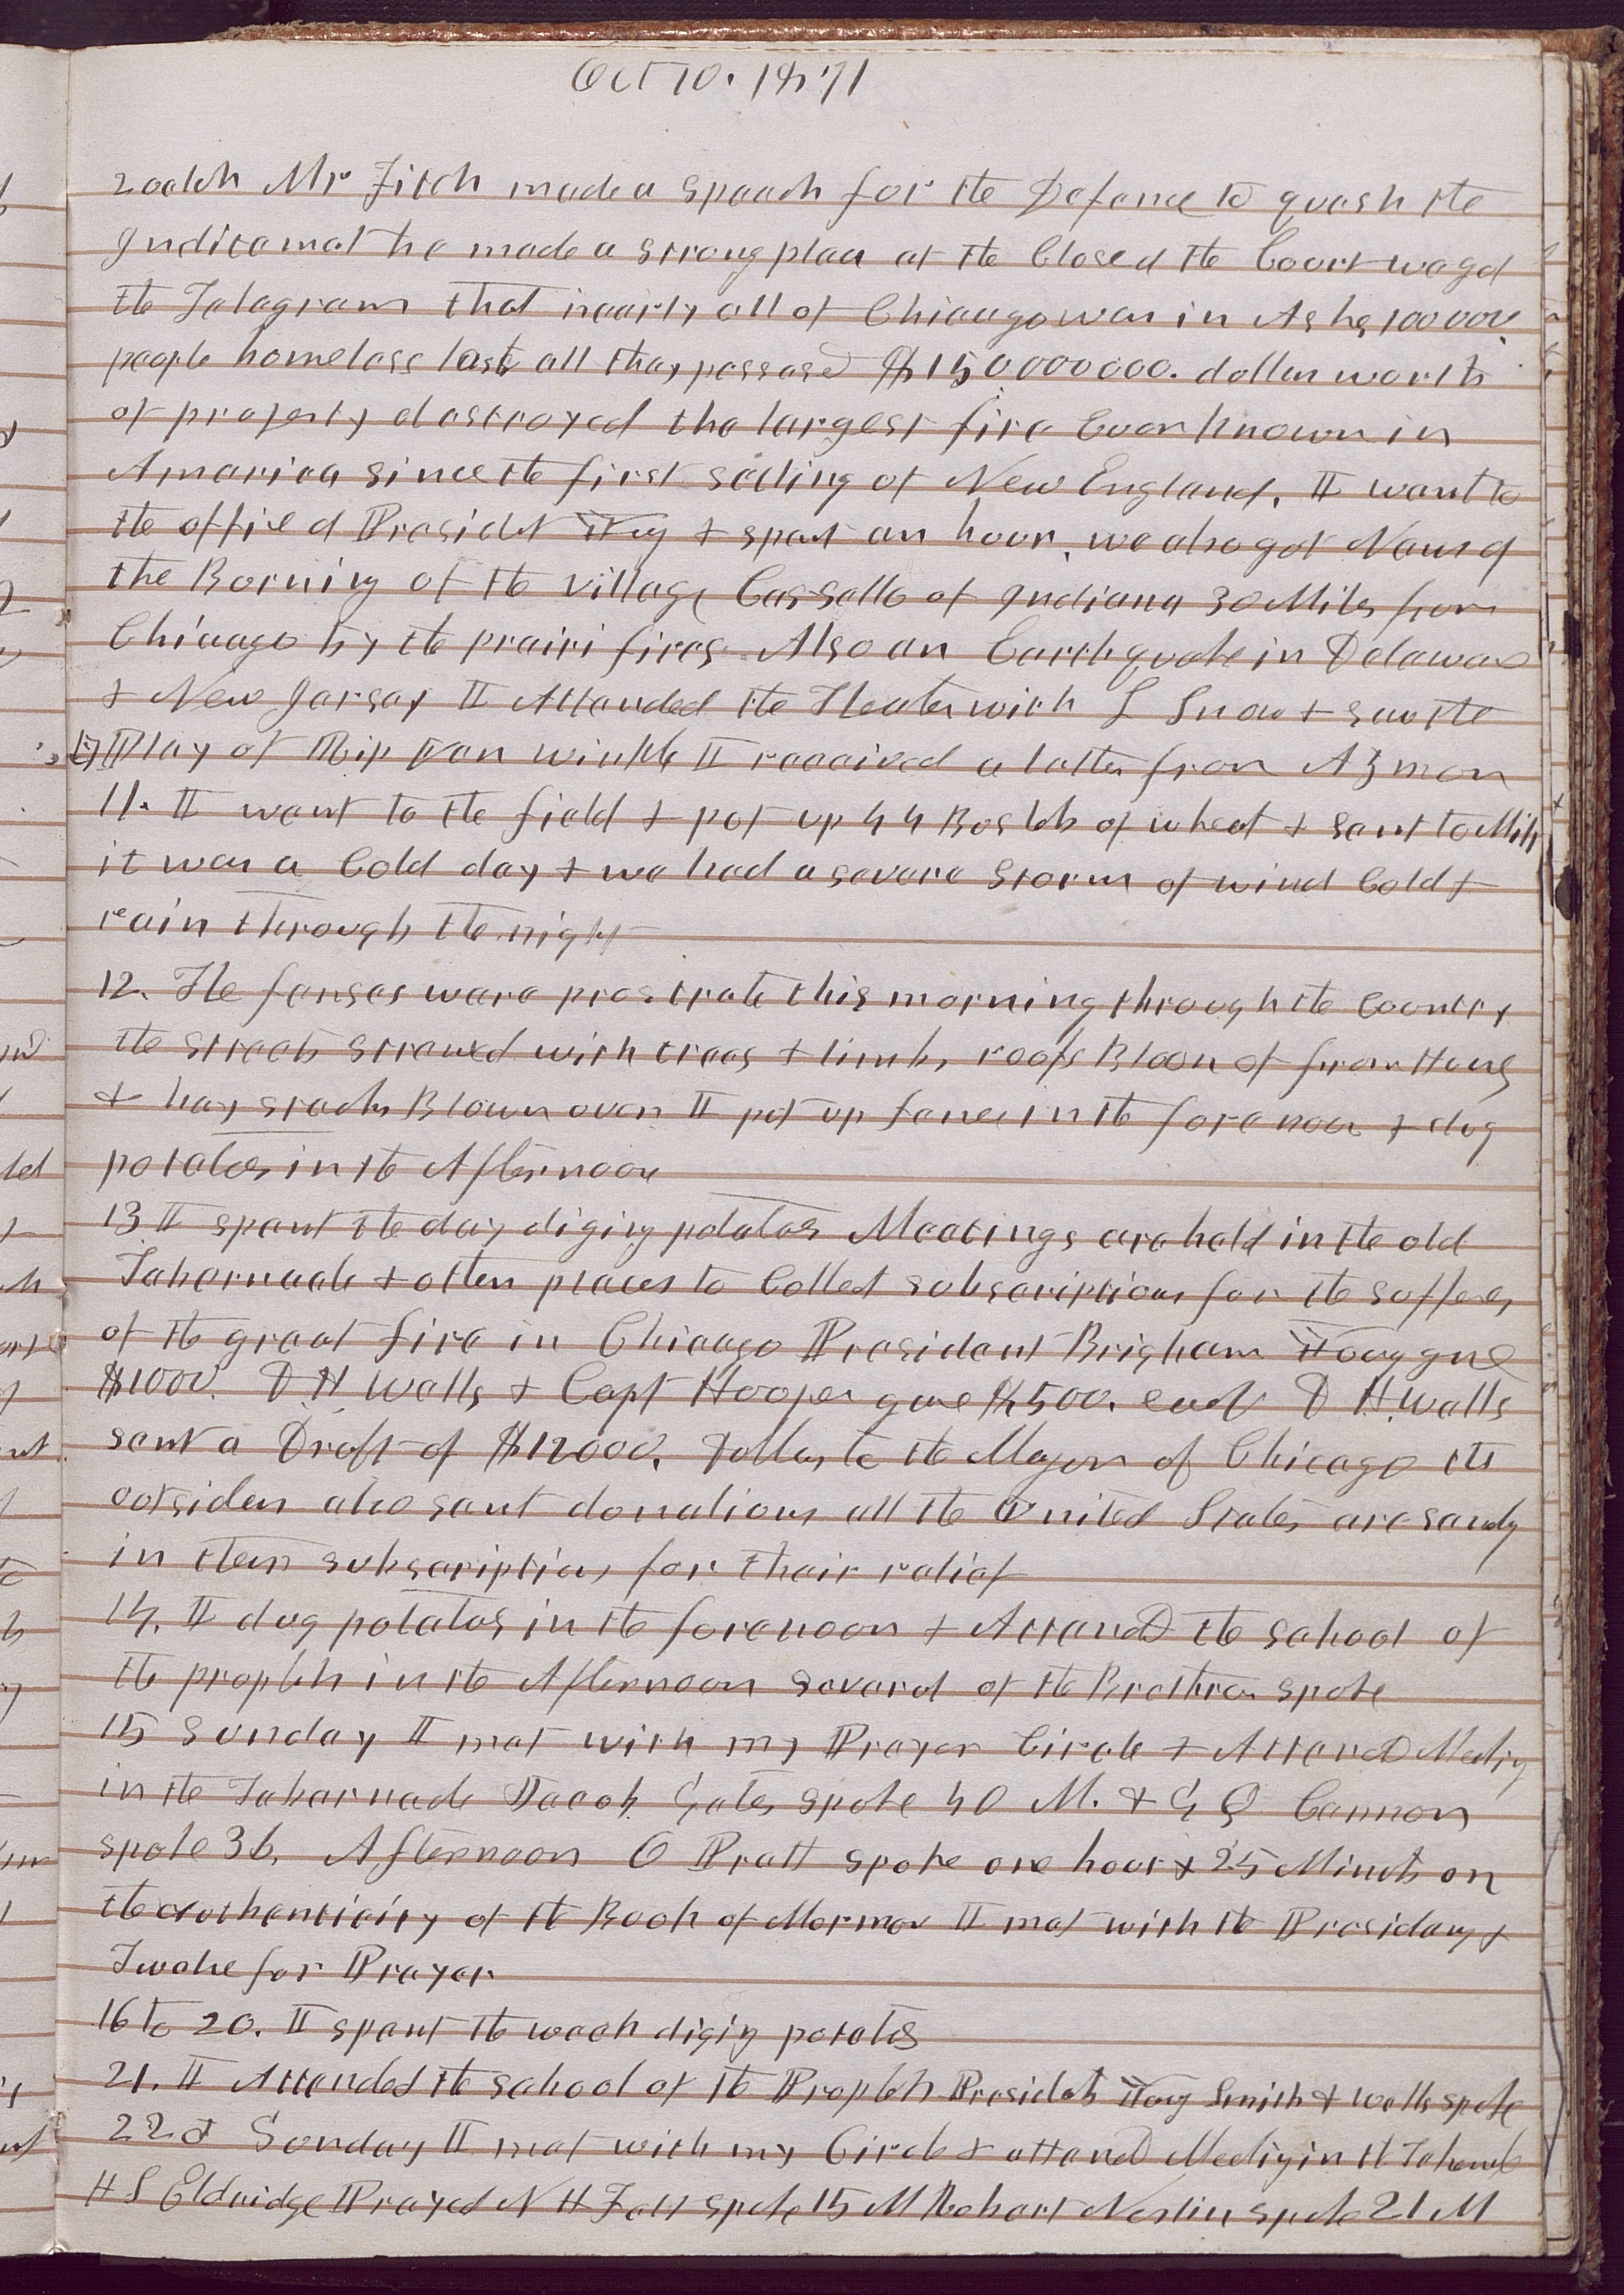 Oct 10. 1871
2oclch Mr Fitch made a speach for the Defence to quash the
Inditemet he made a strong plea at the Close of the Court we got
the Telegram that neearly all of Chicago was in Ashes 100000
people homeless lost all they possesed $150000000. dollars worth
of property destroyed the largest fire Ever known in
America since the first setling of New England. I went to
the office of Presidet Yug & spent an hour. we also got News of
the Borning of the village Cassello of Indiana 30 Miles from
Chicago by the prairi fires Also an Earthquake in Delaware
& New Jersey I Attended the Theater with L Snow & saw the
Play of Rip Van winkle I received a letter from Azmon
11. I went to the field & put up 44 Boshls of wheat & sent to Mill
it was a Cold day & we had a severe storm of wind Cold &
rain through the night
12. The fenses were prostrate this morning through the Country
the streets strewed with trees & limbs, roofs Bloon of from House
& hay stacks Blown over I put up fence in the forenoon & dug
potatoes in the Afternoon
13 I spent the day diging potatos Meetings are held in the old
Tabernacle & other places to Collect subscriptions for the suffers
of the great fire in Chicago President Brigham Youg gave
$1000. D H Wells & Capt Hooper gave $500. each D H. Wells
sent a Draft of $12000. dollars to the Mayor of Chicago the
outsiders also sent donations all the United States are sendg
in their subscriptions for their relief
14. I dug potatos in the forenoon & Attend the school of
the prophets in the Afternoon several of the Brethren spoke
15 Sunday I met with my Prayer Circle & Attend Meetig
in the Tabernacle Jacob Gates spoke 40 M. & G Q Cannon
spoke 36. Afternoon O Pratt spoke one hour & 25 Minuts on
the authenticity of the Book of Mormon I met with the Presidency &
Twelve for Prayer
16 to 20. I spent the week digig potatos
21. I Attended the school of the Prophets Presidets Youg Smith & Wells spoke
22d Sunday I met with my Circle & attend Meetig in the Tabernacle
H S Eldridge Prayed N H Felt spoke 15 M Robart Neslin spoke 21 M